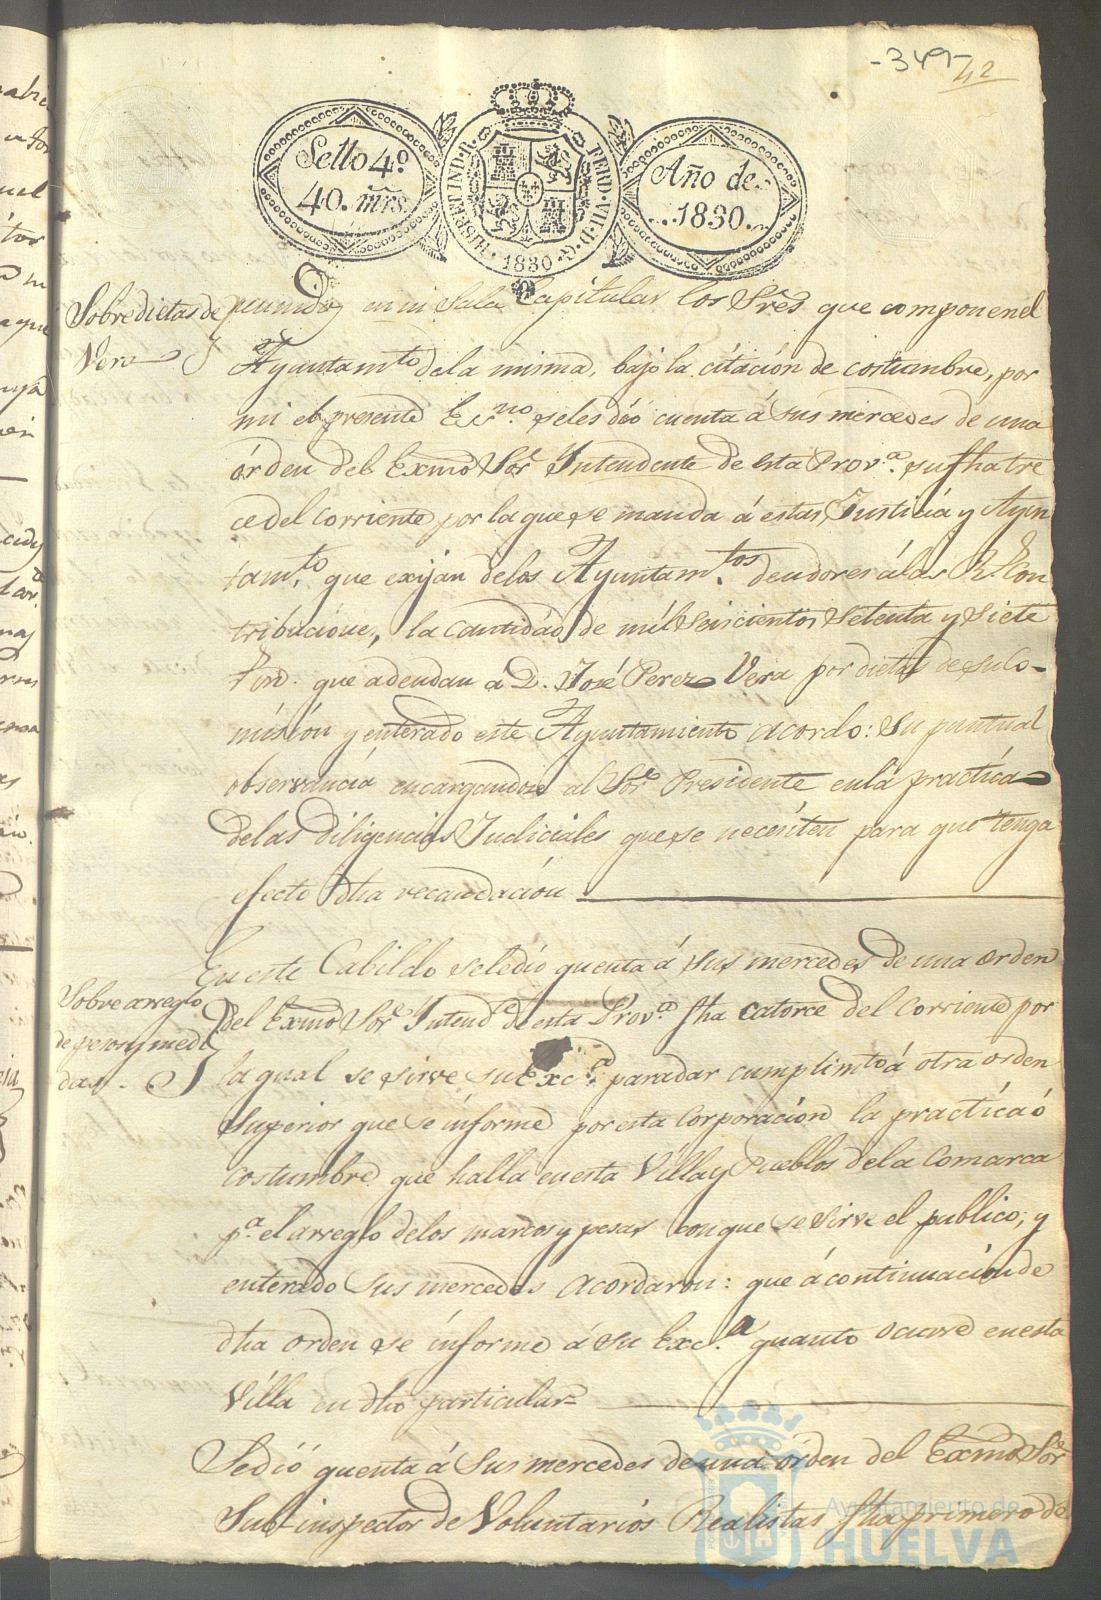 -349-
42
Sello 4º.
40. mrs.
HISP. ET IND. R. FERD. VII. D. G. 1830
Año de
1830.
Sobre dietas de
Vera
reunidos en su Sala Capitular los Sres que componen el
Ayuntamto dela misma, bajo la citación de costumbre, por
mi el presente Esno. seles dió cuenta á sus mercedes de una
órden del Exmo Sor Intendente de esta Prova. su fha tre
ce del corriente por la que se manda á estas Justicia y Ayun
tamto. que exijan delos Ayuntamtos. deudores álas Rs. Con
tribucione, la cantidad de mil seiscientos setenta y siete
que adeudan a D. José Perez Vera por dietas de su Co-
mision y enterado este Ayuntamiento acordo: Su puntual
observancia encargandose al Sor Presidente enla practica
delas diligencias Judiciales que se necesiten para que tenga
efecto dha recaudación
Sobre arreglo
de pesos y medi
das.
En este Cabildo seledió quenta á sus mercedes de una orden
del Exmo Sor Intende. de esta Prova fha catorce del corriente por
la qual se sirve su Exca. para dar cumplimto á otra orden
superior que se informe por esta Corporación la practica ó
costumbre que halla en esta Villa y Pueblos dela Comarca
pa. el arreglo delos marcos y pesas con que se sirve el publico; y
enterado sus mercedes acordaron: que á continuación de
dha orden se informe á su Exc.a quanto ocurre en esta
Villa en dho particular
Sedió quenta á sus mercedes de una órden del Exmo Sor
Sub-inspector de Voluntarios Realistas fha primero de
Ayuntamiento de
HUELVA